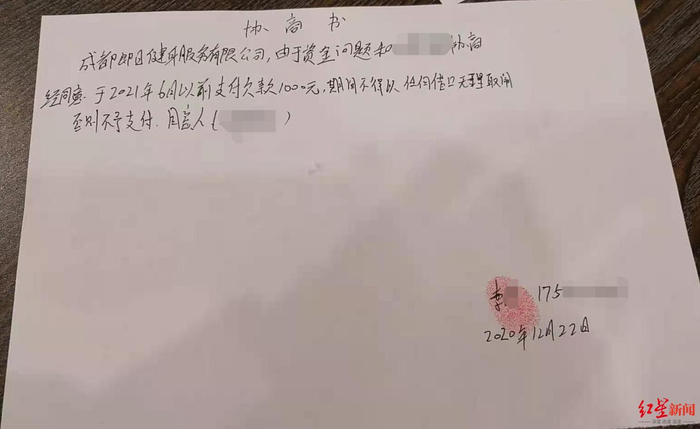 协商书
成都即日健身服务有限公司,由于资金问题和 协商
经同意.于2021年6月以前支付欠款1000元,期间不得以任何借口无理取闹
否则不予支付.同意人( )
李 175
2020年12月22日
红星新闻